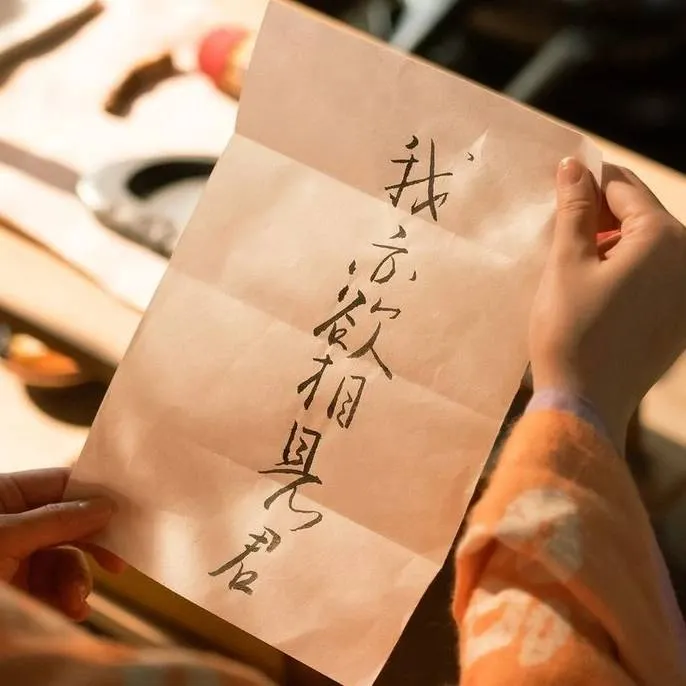 我亦欲相見君